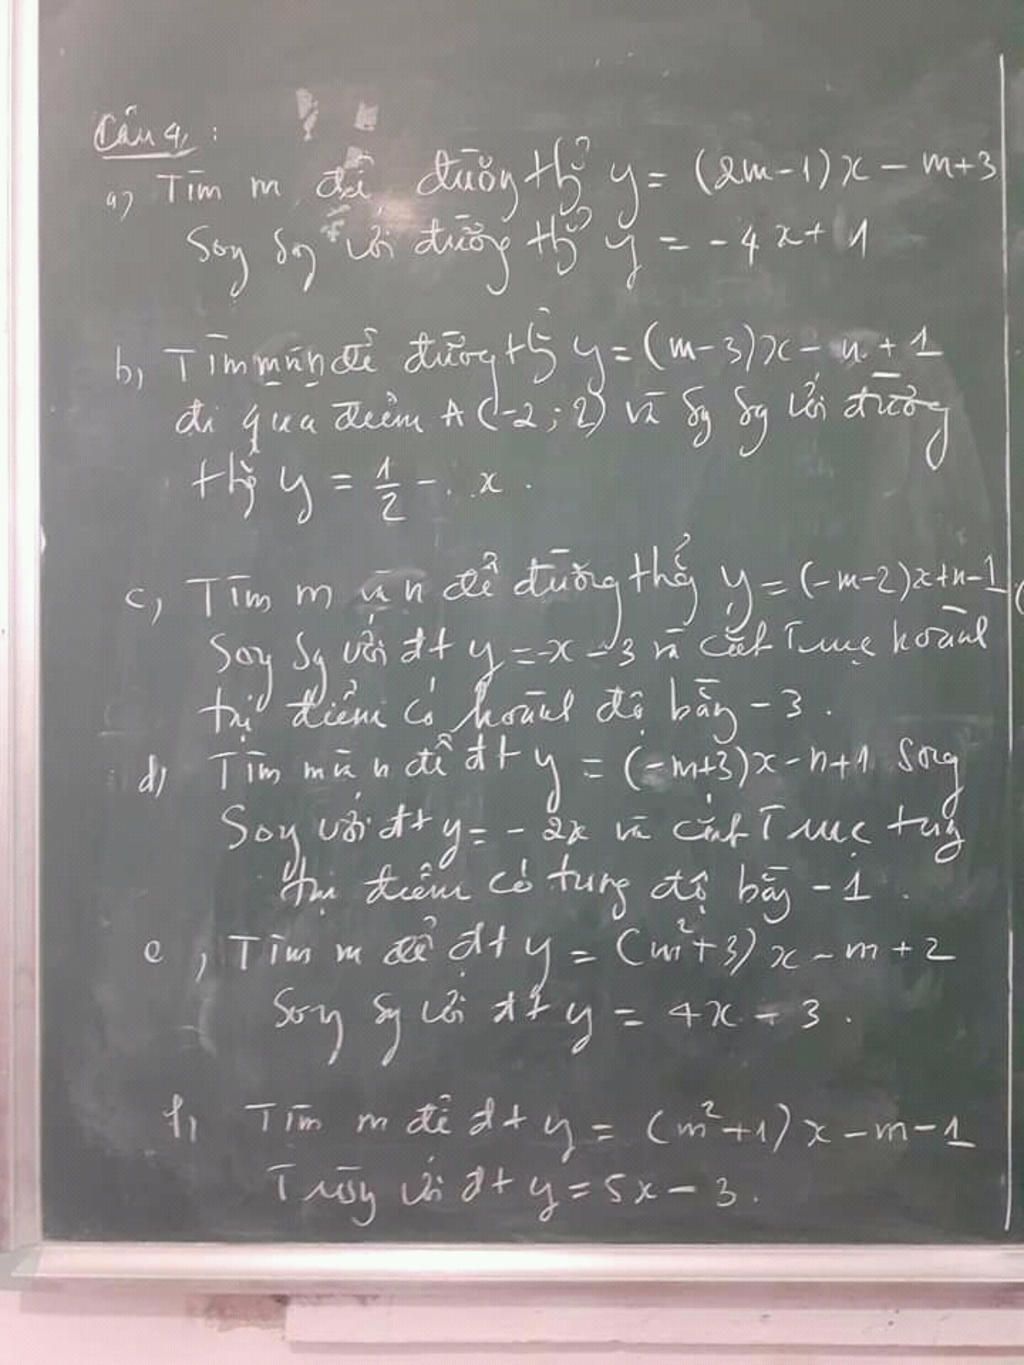 Câu 4 :
a) Tìm m để đường thẳng y = (2m-1)x - m+3
Song song với đường thẳng y = -4x + 1
b, Tìm m và n để đường thẳng y = (m-3)x - n + 1
đi qua điểm A (-2 ; 2) và song song với đường
thẳng y = 1/2 - x .
c, Tìm m và n để đường thẳng y = (-m-2)x+n-1
song song với đt y = -x - 3 và cắt Trục hoành
tại điểm có hoành độ bằng - 3 .
d, Tìm m và n để đt y = (-m+3)x - n+1 song
song với đt y = - 2x và cắt Trục tung
tại điểm có tung độ bằng - 1 .
e , Tìm m để đt y = (m²+3)x - m + 2
Song song với đt y = 4x - 3 .
f, Tìm m để đt y = (m²+1)x - m - 1
Trùng với đt y = 5x - 3 .